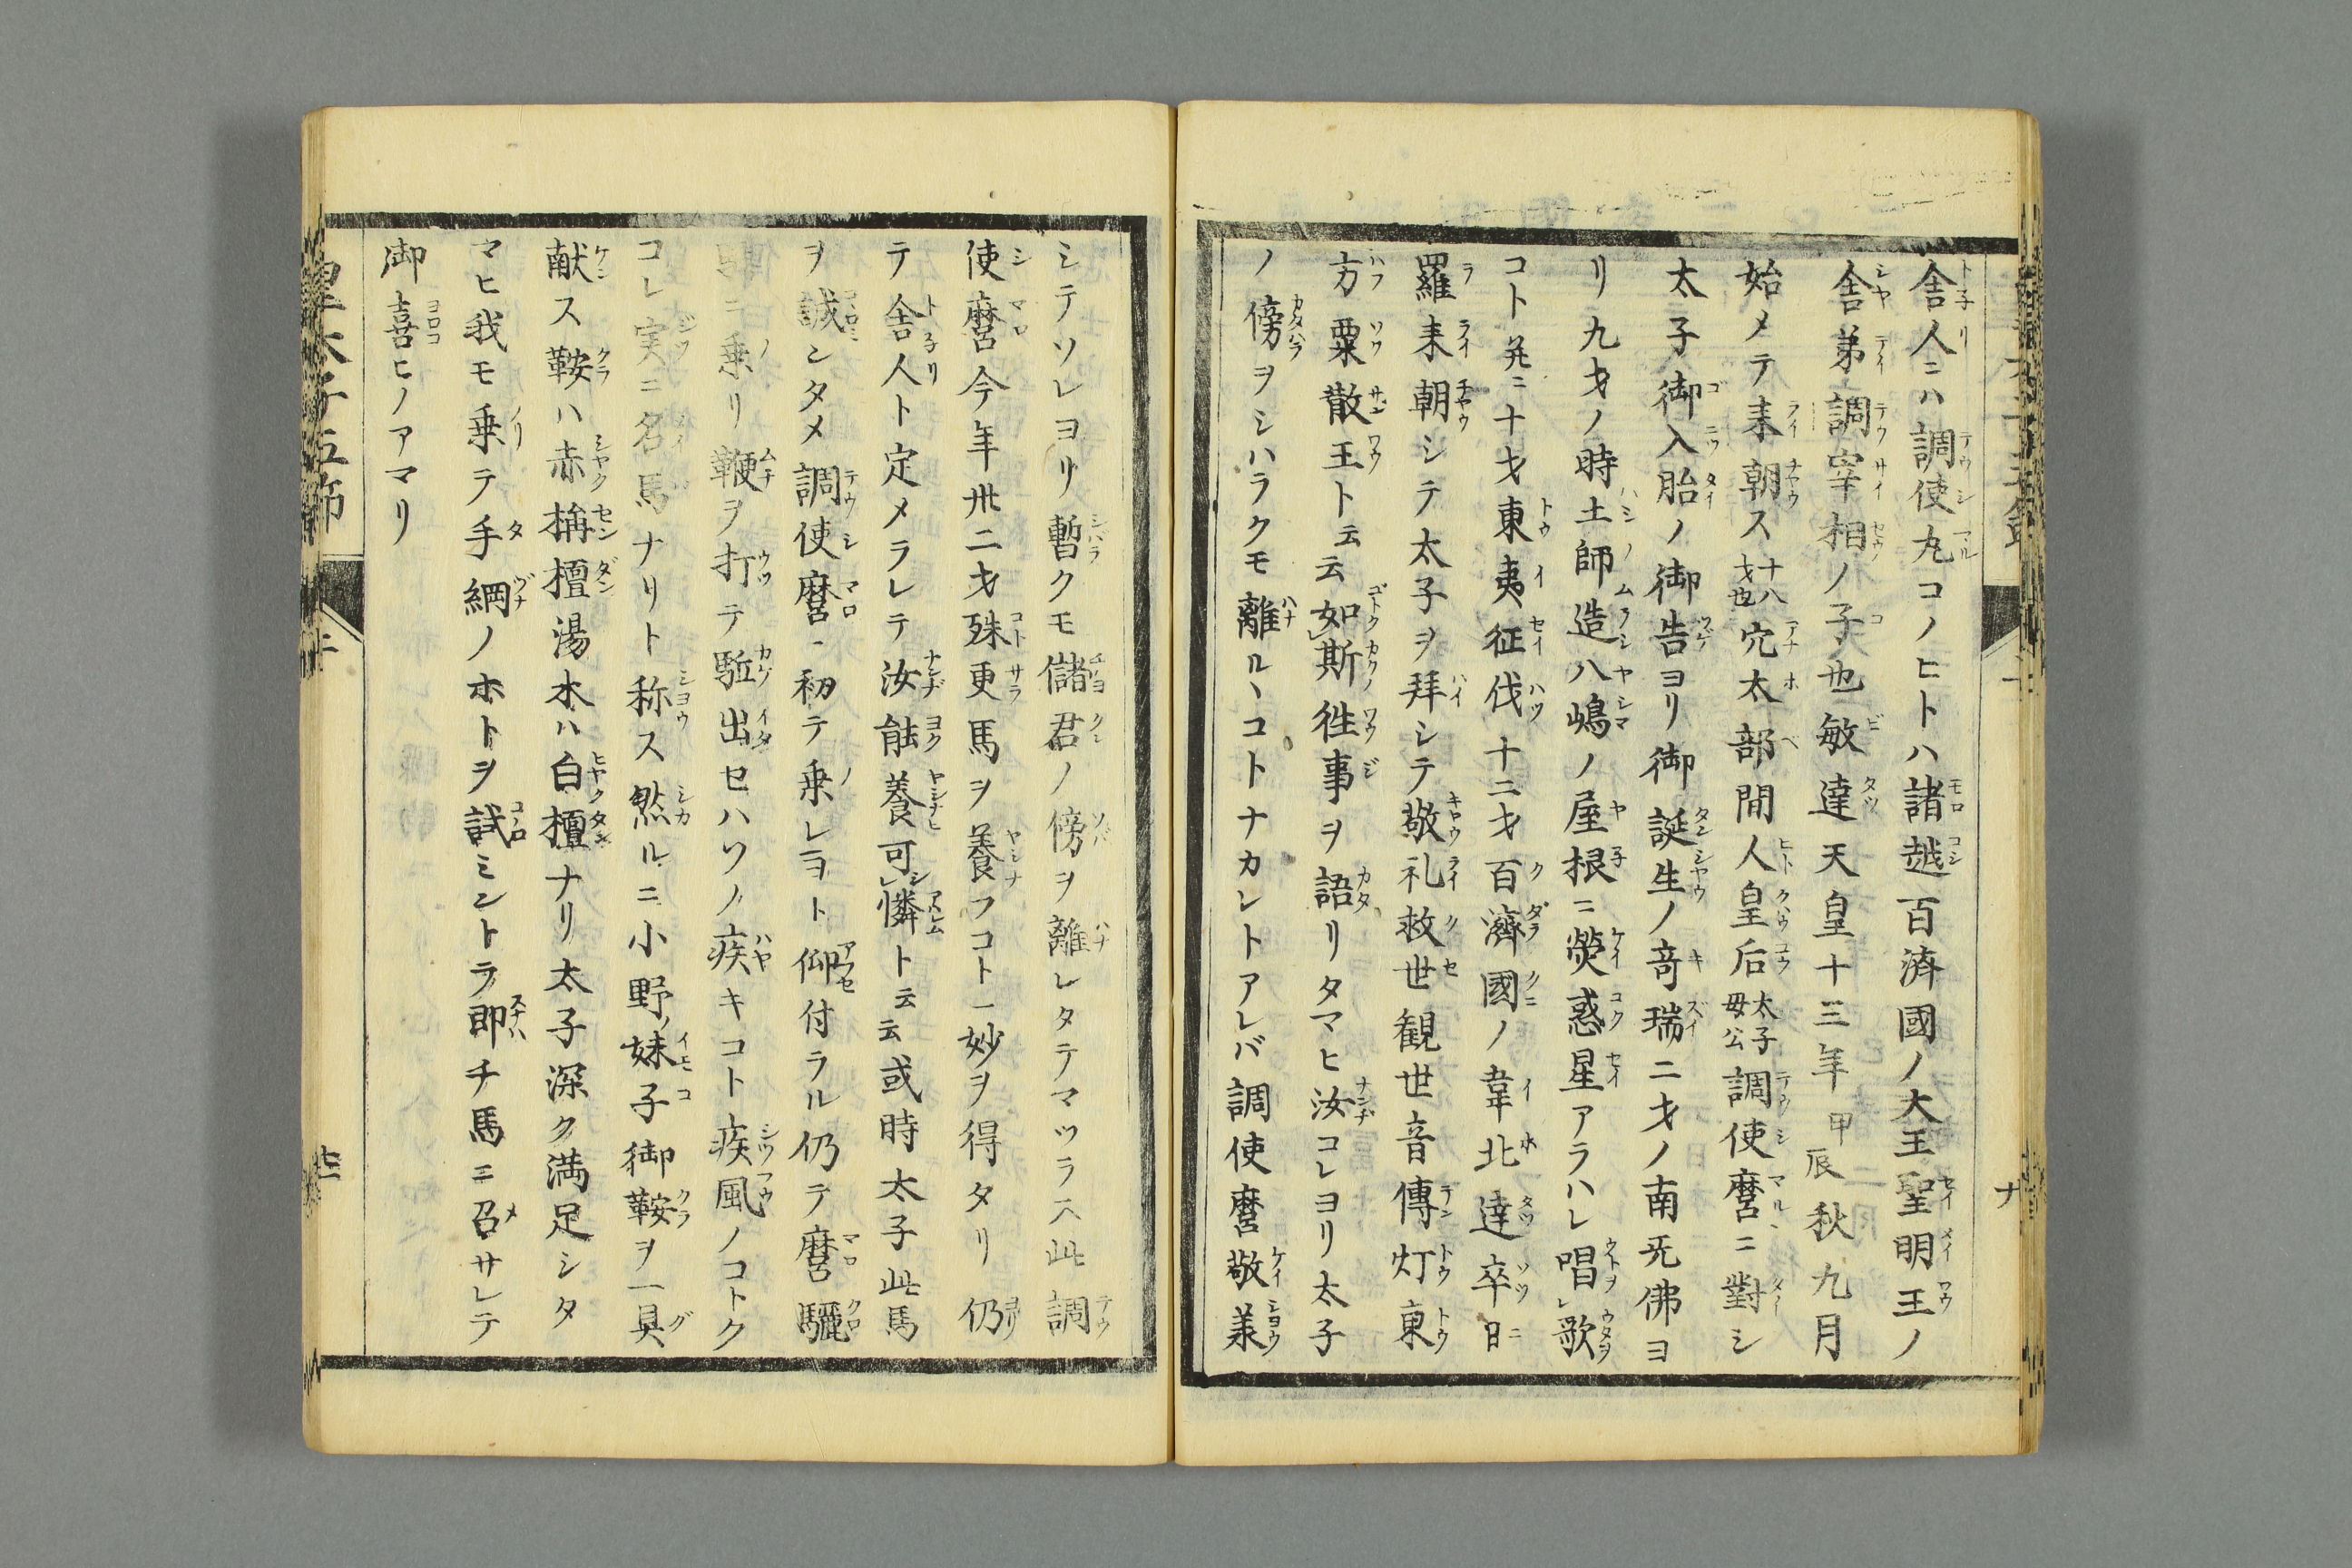 舎人ニハ調使丸コノヒトハ諸越百済國ノ大王聖明王ノ
舎弟調宰相ノ子也敏達天皇十三年甲辰秋九月
始メテ来朝ス十八才也穴太部間人皇后太子母公調使麿ニ對シ
太子ノ御入胎ノ御告ヨリ御誕生ノ竒瑞二才ノ南旡佛ヨ
リ九才ノ時土師造八嶋ノ屋根ニ熒惑星アラハレ唱レ歌
コト并ニ十才東夷征伐十二才百濟國ノ韋北達卒日
羅来朝シテ太子ヲ拜シテ敬礼救世観世音傳灯東
方粟散王ト云云如レ斯徃事ヲ語リタマヒ汝コレヨリ太子
ノ傍ヲシハラクモ離ルヽコトナカレトアレバ調使麿敬美
シテソレヨリ暫クモ儲君ノ傍ヲ離レタテマツラス此調
使麿今年卅二才殊更馬ヲ養フコト一妙ヲ得タリ仍
テ舎人ト定メラレテ汝能養可レ憐ト云云或時太子此馬
ヲ誠シタメ調使麿ヽ初テ乗レヨト仰付ラル仍テ麿驪
駒ニ乗リ鞭ヲ打テ駈出セハソノ疾キコト疾風ノコトク
コレ実ニ名馬ナリト称ス然ルニ小野ノ妹子御鞍ヲ一具
献ス鞍ハ赤栴檀湯木ハ白檀ナリ太子深ク満足シタ
マヒ我モ乗テ手綱ノホトヲ試ミントラ即チ馬ニ召サレテ
御喜ヒノアマリ
皇太子五節